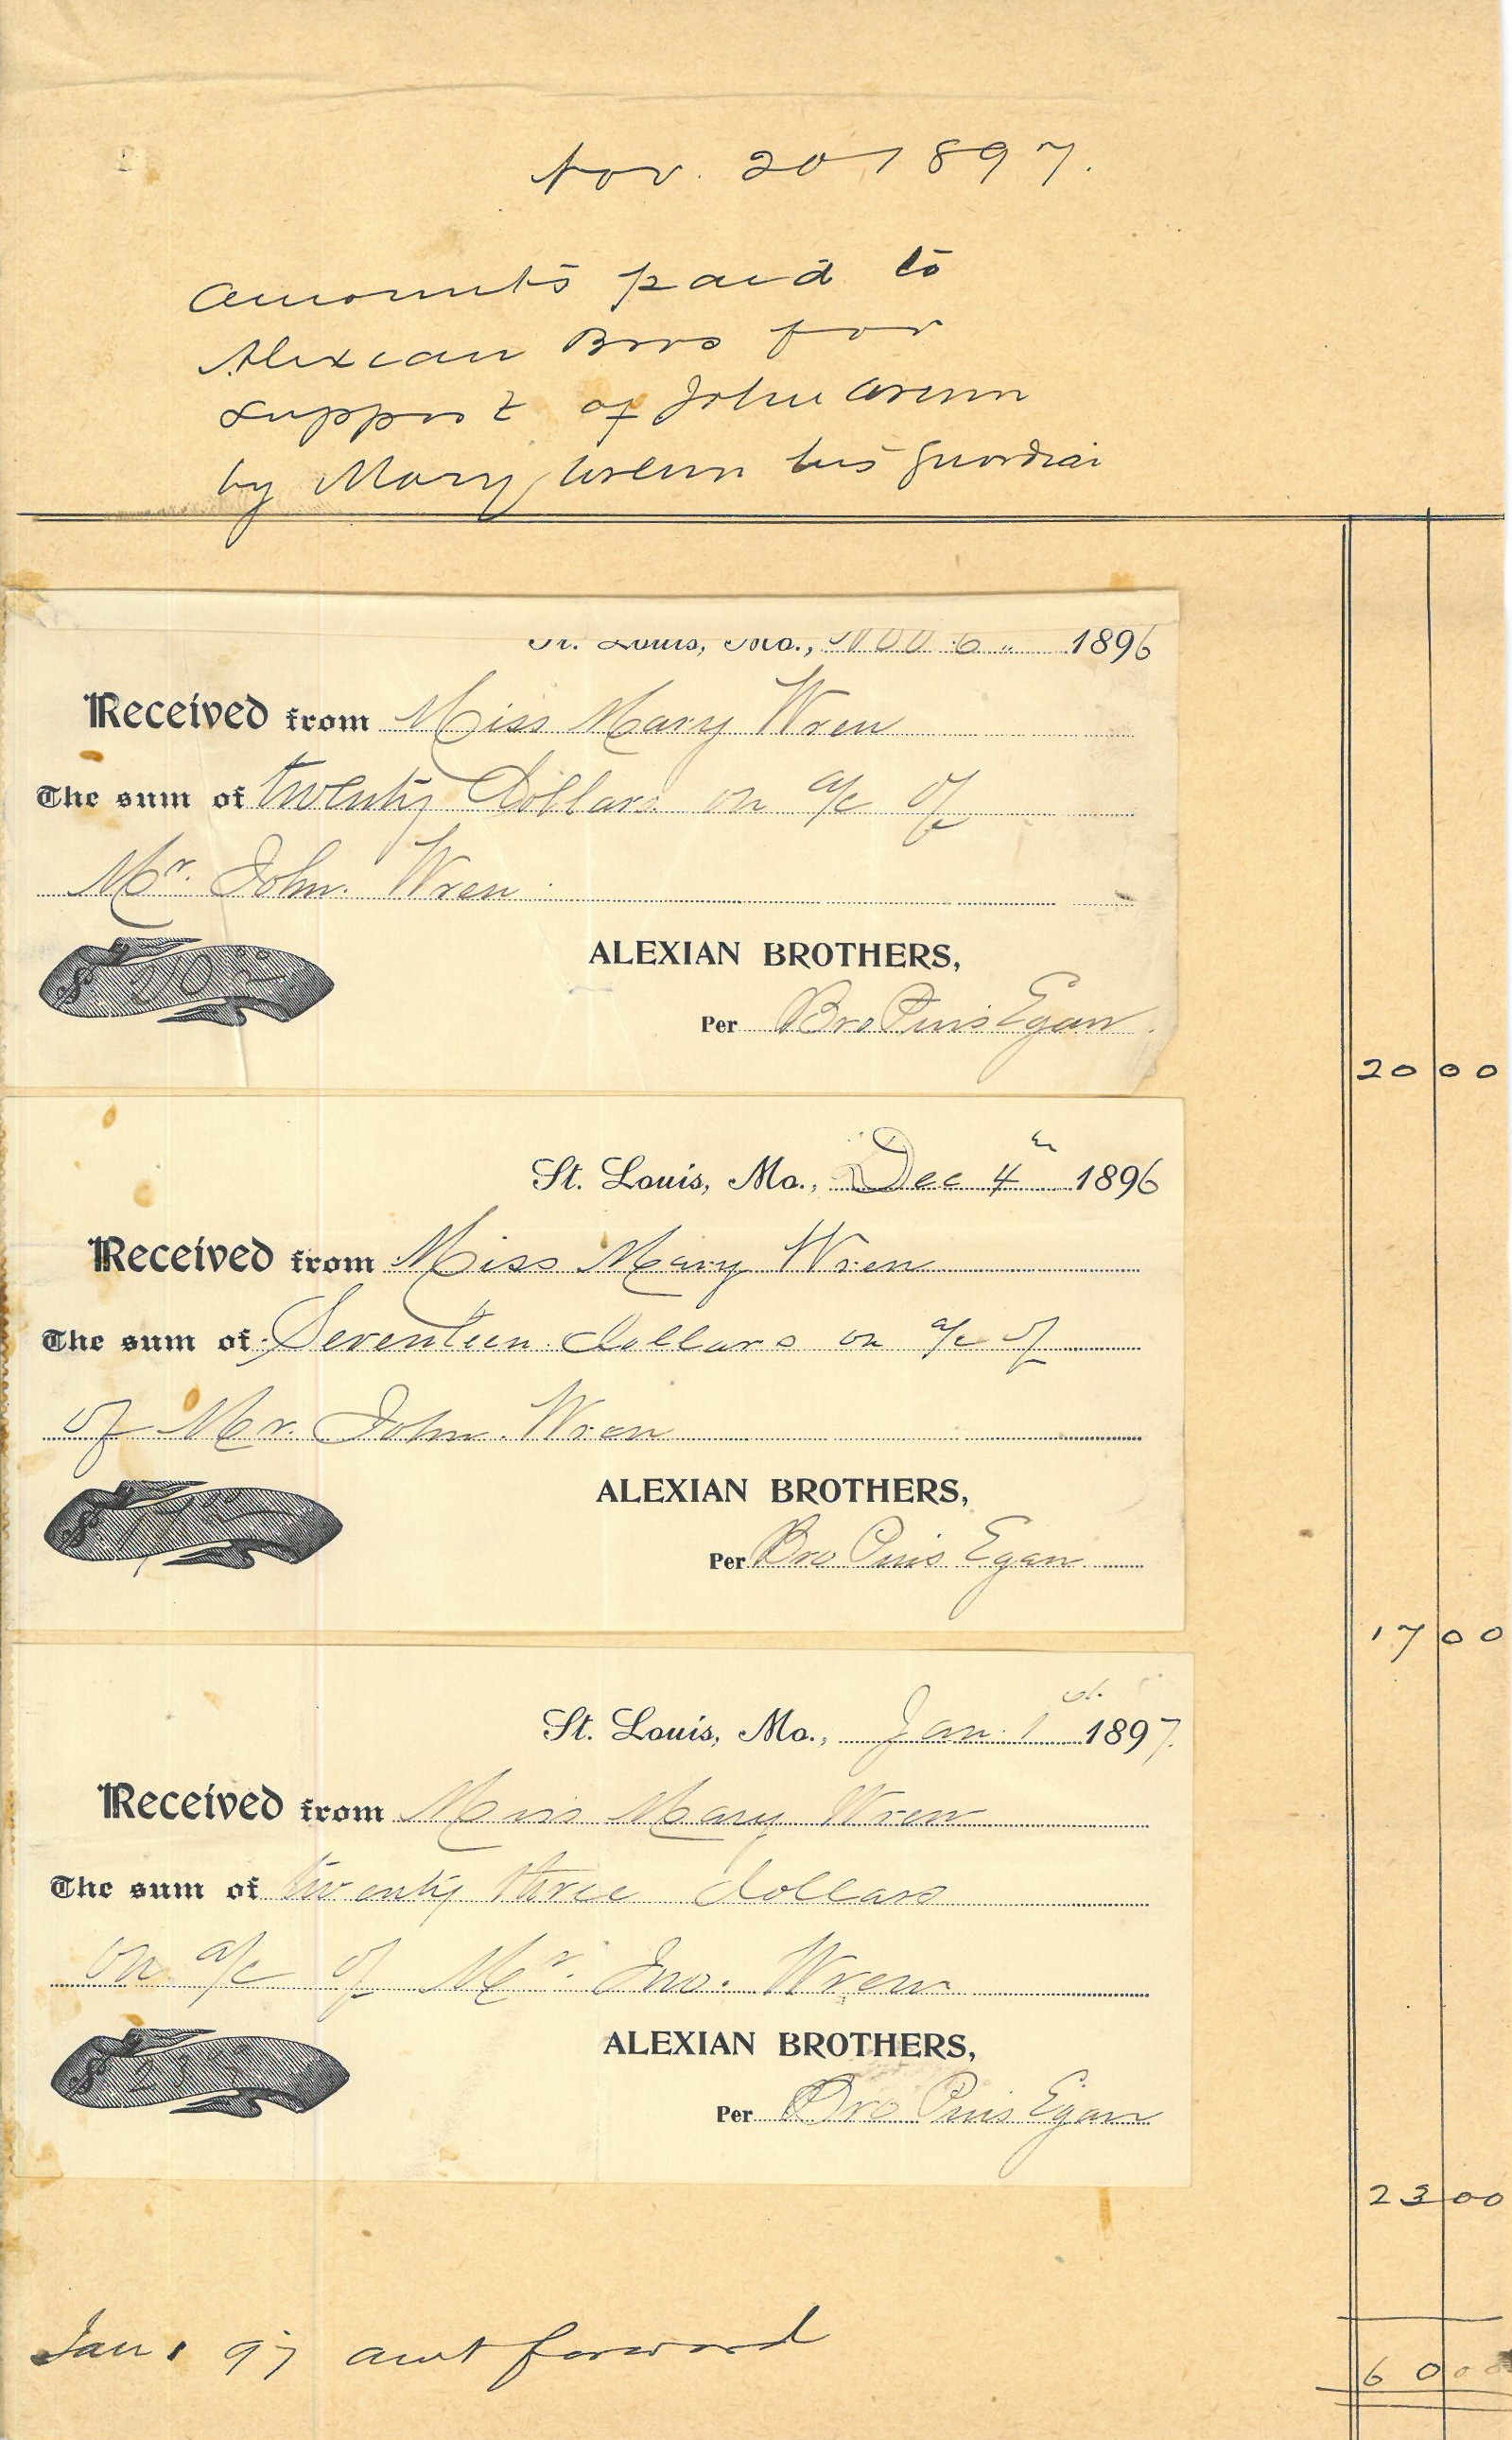 Nov. 20 1897.
Amounts paid to
Alexian Bros for
support of John Wrenn
by Mary Wrenn his guardian
St. Louis, Mo., Nov 6 1896
Received from Miss Mary Wren
The sum of twenty Dollars on a/c of
Mr. John. Wren
$ 20 00
ALEXIAN BROTHERS,
Per Bro Pius Egan.
20 00
St. Louis, Mo., Dec 4th 1896
Received from Miss Mary Wren
The sum of Seventeen dollars on a/c of
of Mr. John. Wren
$ 17 00
ALEXIAN BROTHERS,
Per Bro Pius Egan
17 00
St. Louis, Mo., Jan. 1st. 1897.
Received from Miss Mary Wren
The sum of twenty three dollars
on a/c of Mr. Jno. Wren
$ 23
ALEXIAN BROTHERS,
Per Bro Pius Egan
23 00
Jan 1 97 amt forward
60 00